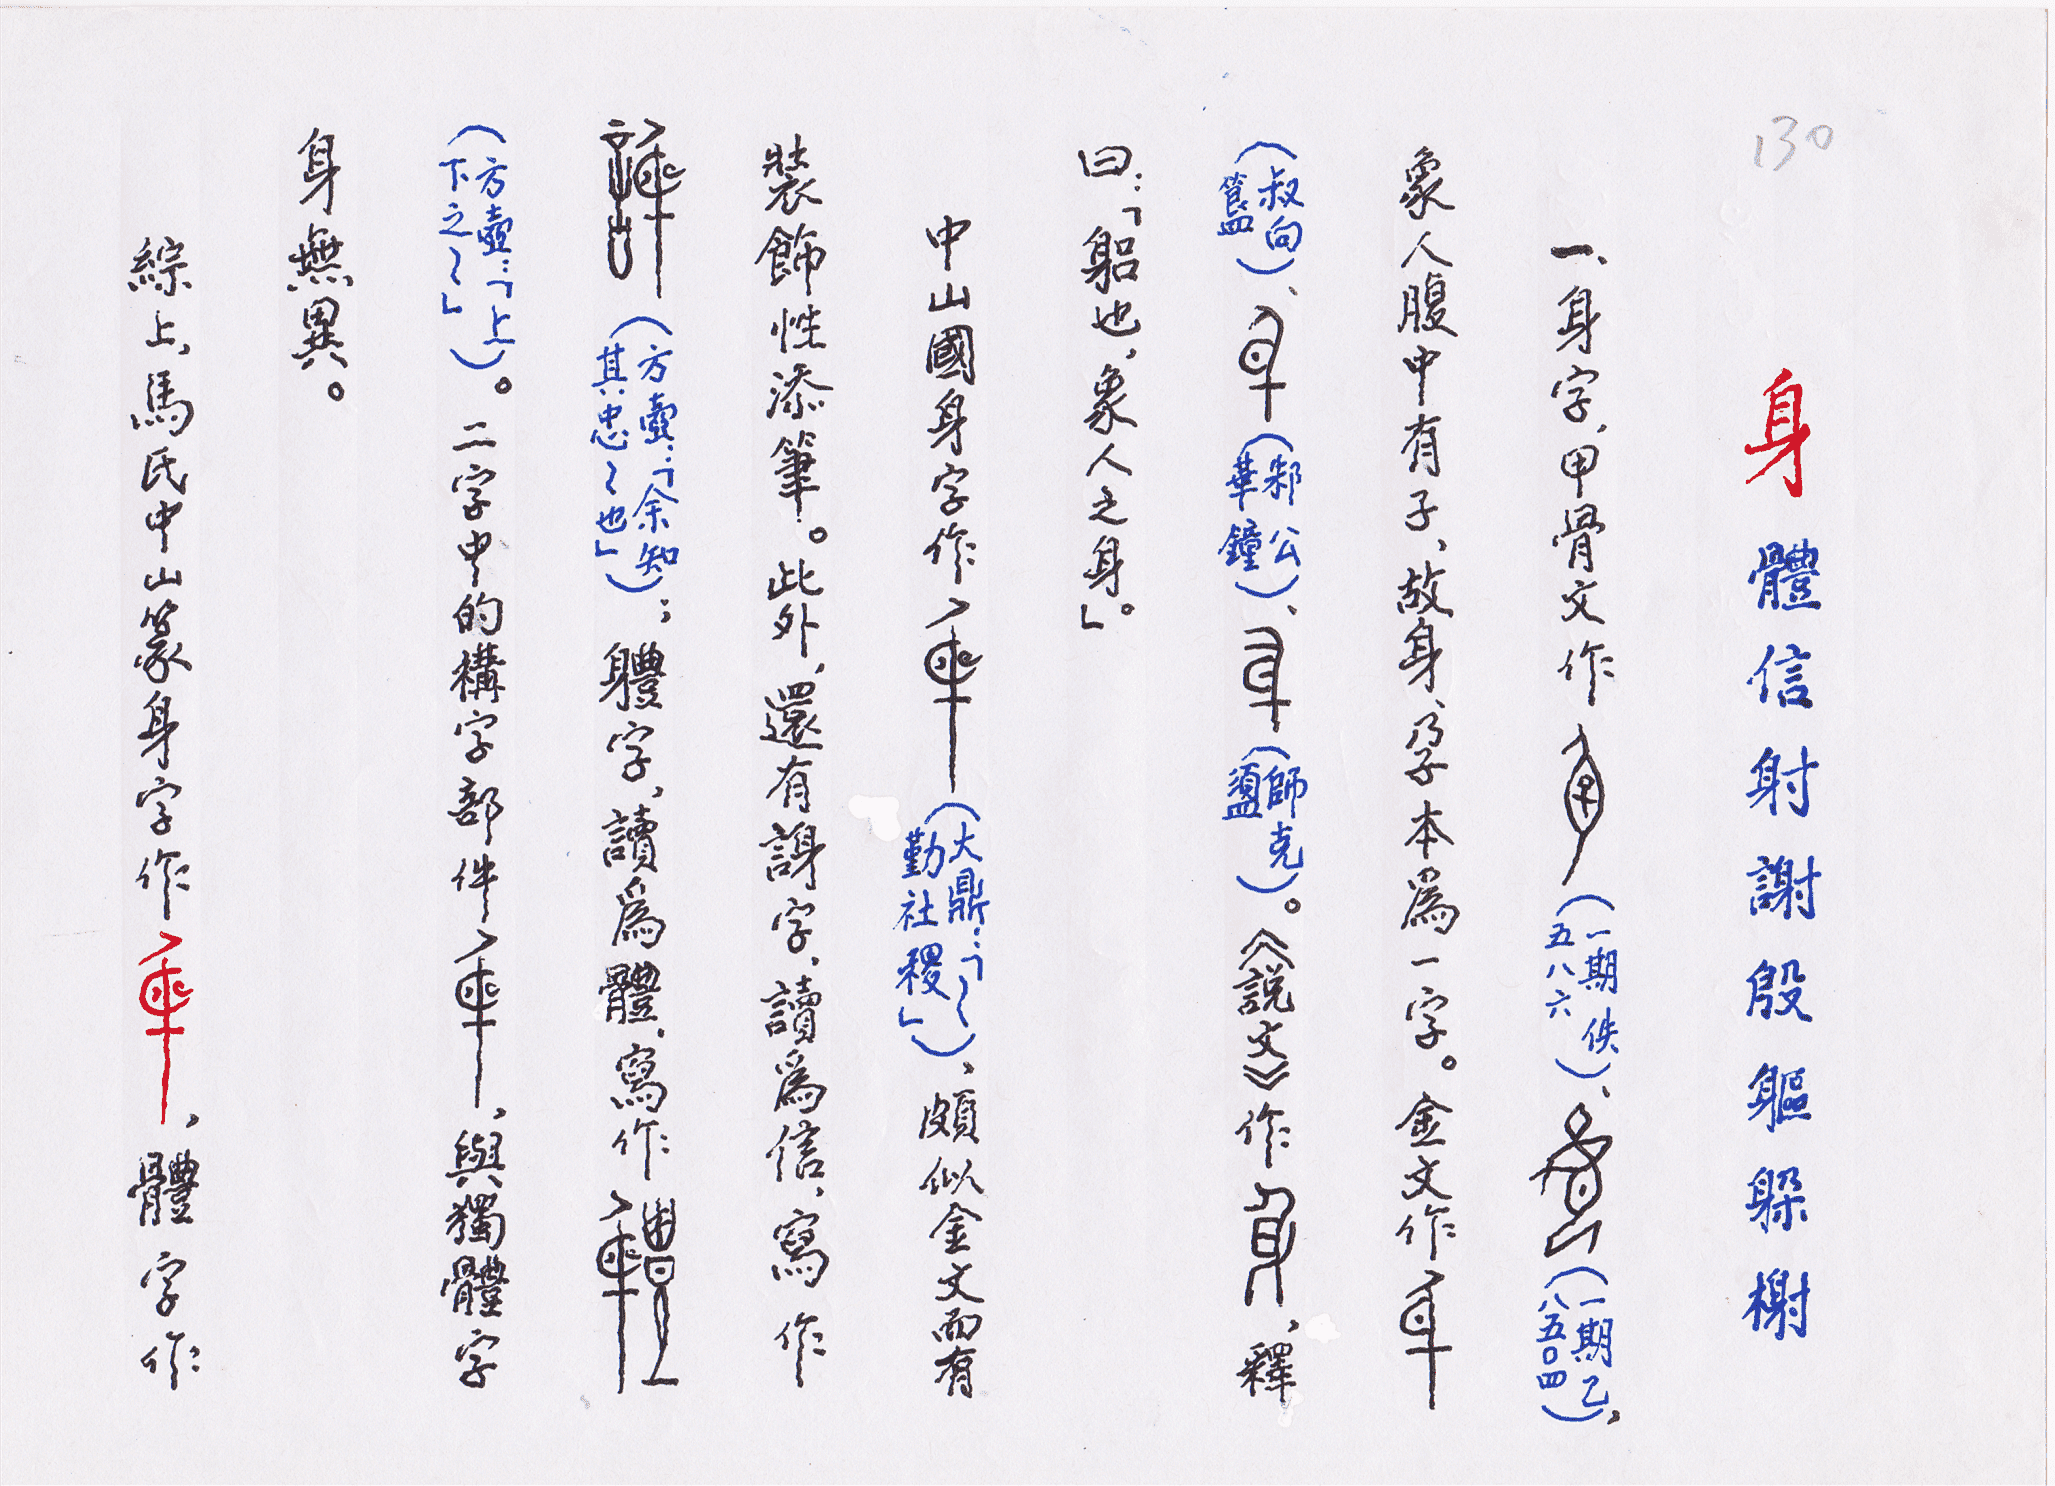 130
身 體信射謝殷軀躲榭
一、身字，甲骨文作（一期佚五八六）、（一期乙八五〇四），
象人腹中有子，故身、孕本爲一字。金文作
（叔向簋）、（邾公華鐘）、（師克盨）。《說文》作，釋
曰：「躳也，象人之身。」
中山國身字作（大鼎：「〜〜勤社稷」），頗似金文而有
裝飾性添筆。此外，還有謝字，讀爲信，寫作
（方壺：「余知其忠〜也」）；軆字，讀爲體，寫作
（方壺：「上下之〜」）。二字中的構字部件，與獨體字
身無異。
綜上，馬氏中山篆身字作，體字作